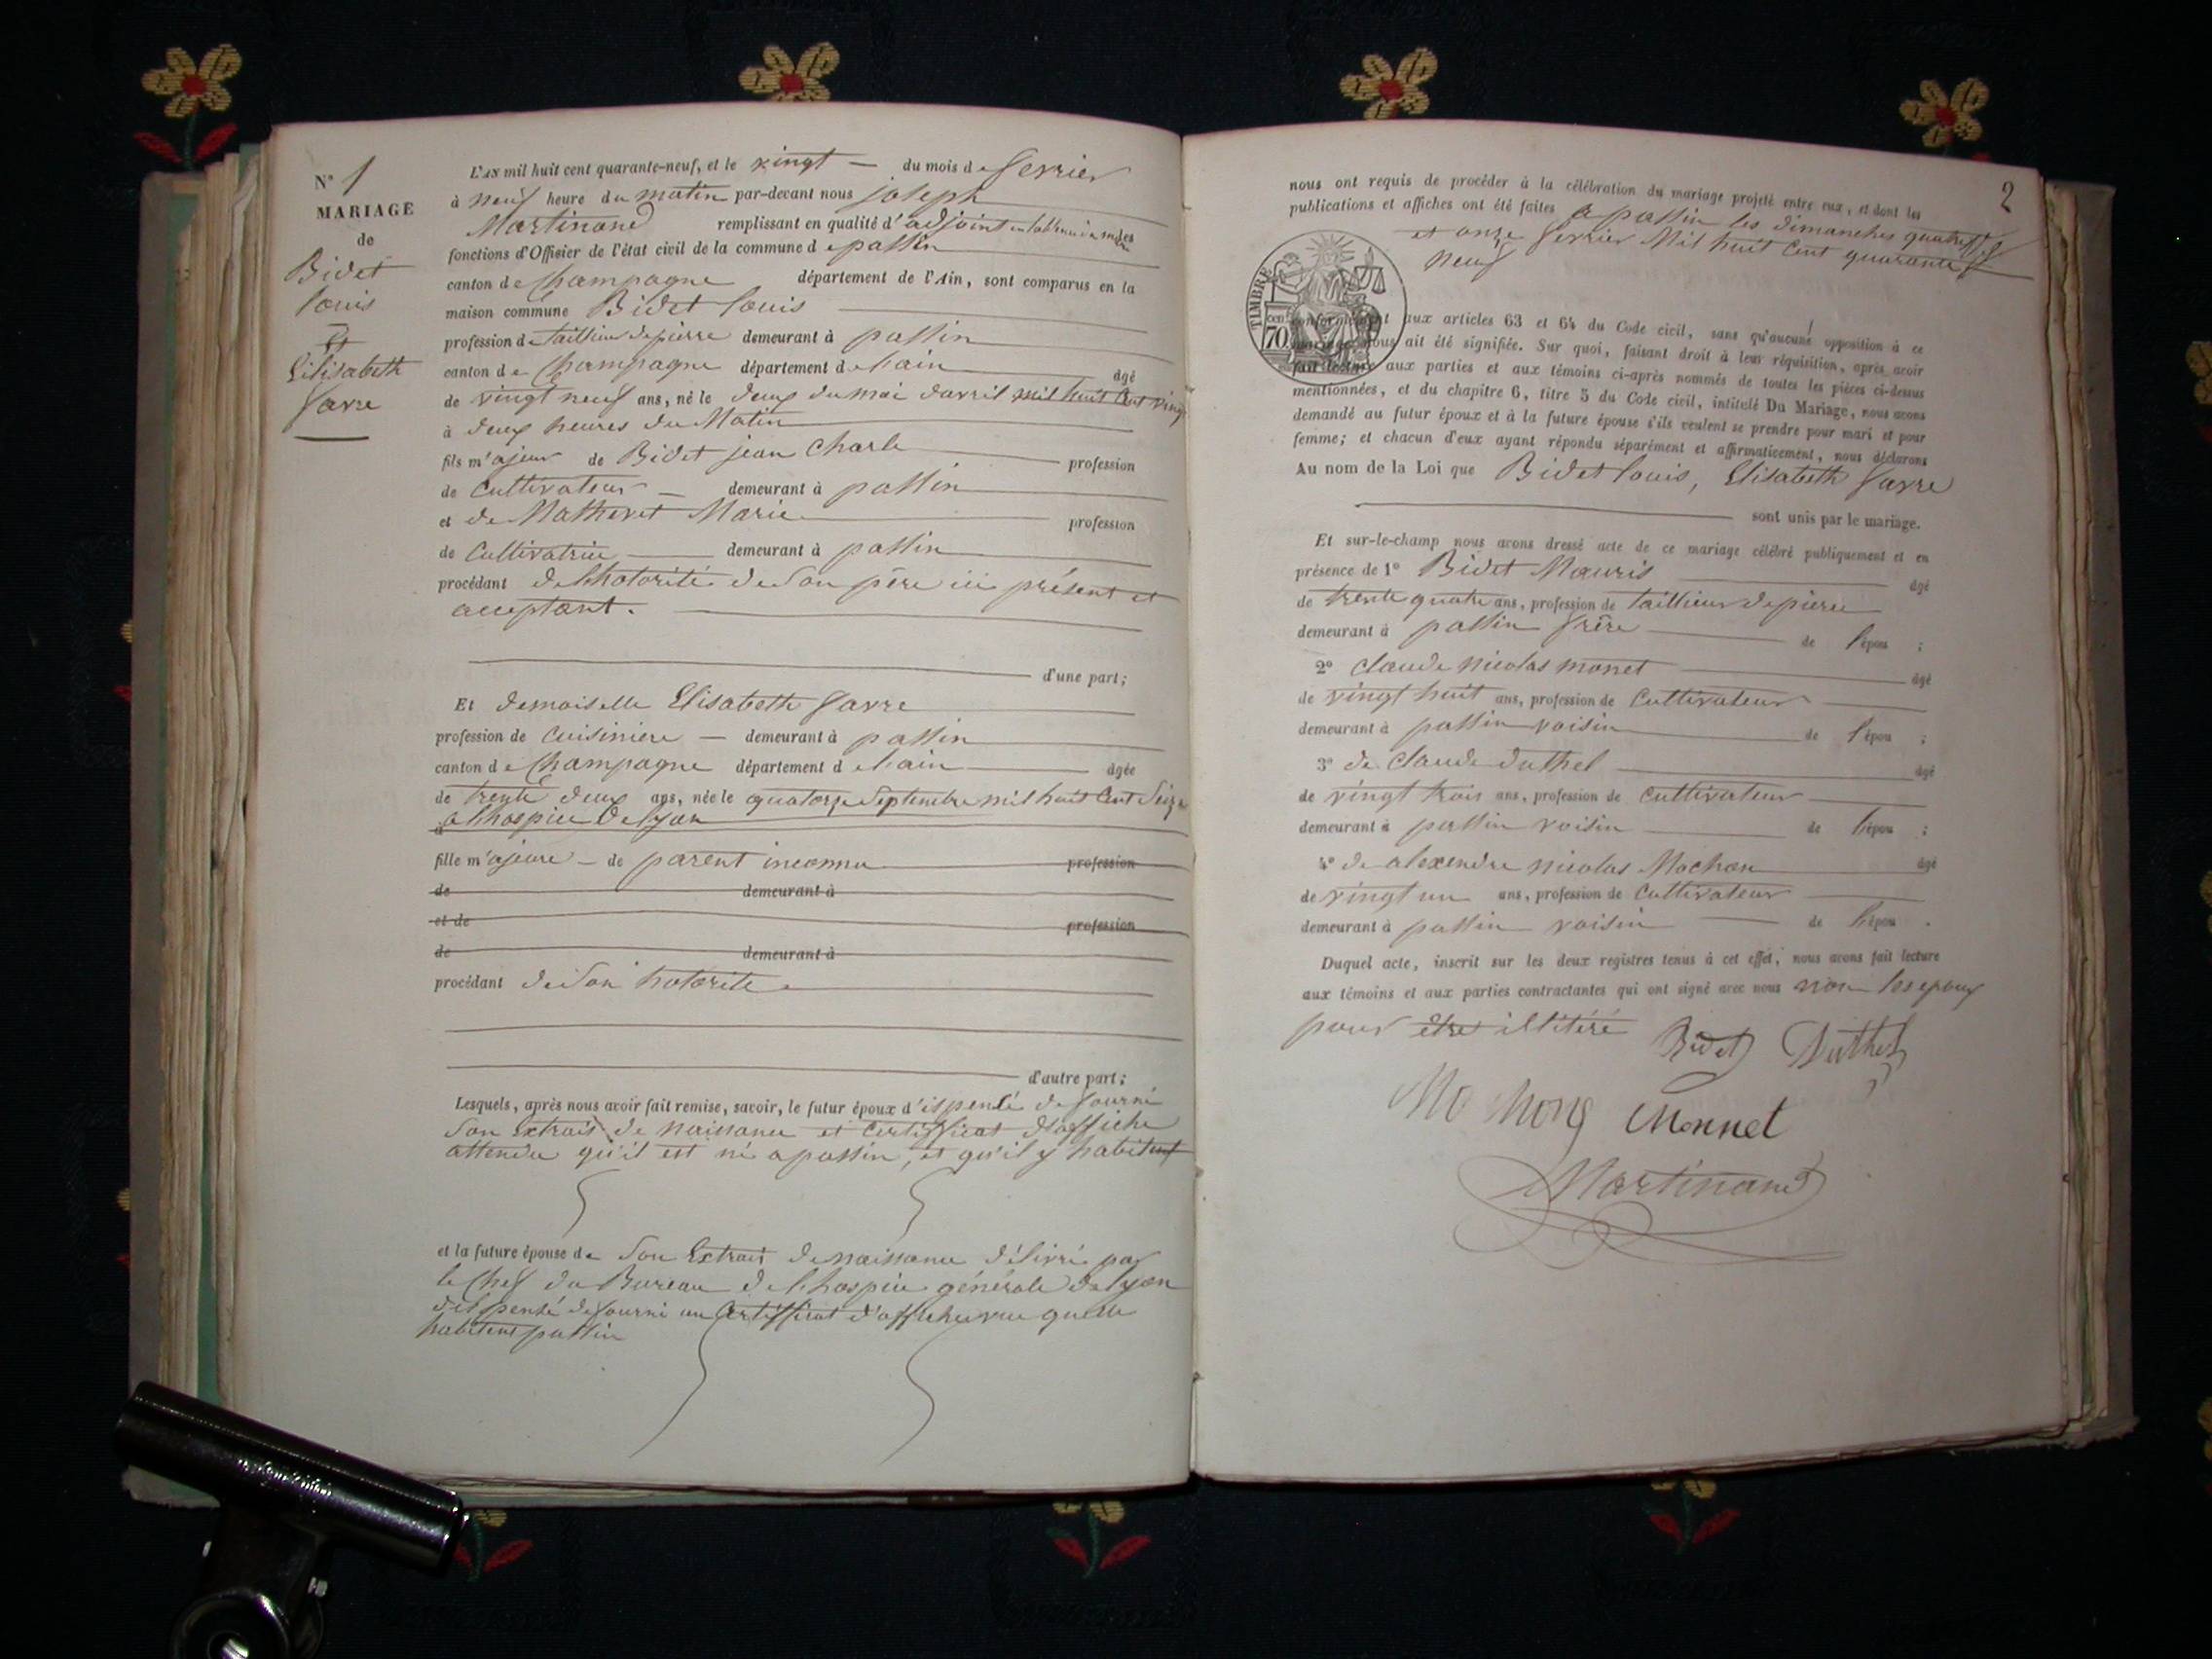 N° 1
MARIAGE
de
Bidet
louis
Et
Elisabeth
Favre
L'AN mil huit cent quarante-neuf, et le vingt du mois de fevrier
à neuf heure du matin par-devant nous joseph
Martinand remplissant en qualité d'adjoint les
fonctions d'Officier de l'état civil de la commune de passin
canton de Champagne département de l'Ain, sont comparus en la
maison commune Bidet louis
profession de taillieur de pierre demeurant à passin
canton de Champagne département de lain âgé
de vingt neuf ans, né le deux du moi davril mil huit Cent vingt
à deux heures du Matin
fils m'ajeur de Bidet jean Charle profession
de Cultivateur demeurant à passin
et de Mathevet Marie profession
de Cultivatrice demeurant à passin
procédant de lhotorité de Son père ici présent et
acceptant.
d'une part;
Et demoiselle Elisabeth favre
profession de Cuisiniere demeurant à passin
canton de Champagne département de lain âgée
de trente deux ans, née le quatorze Septembre mil huit Cent Seize
a lhospice De lyon
fille m'ajeure de parent inconnu profession
de demeurant à
et de profession
de demeurant à
procédant de Son hotorite
d'autre part;
Lesquels, après nous avoir fait remise, savoir, le futur époux d'ispensé de fourni
Son Extrait de naissance et Certifficat d'affiche
attendu qu'il est né a passin, et qu'il y habitent
et la future épouse de Son Extrait de naissance délivré par
le Chef du Bureau de lhospice générale de lyon
dispensé de fourni un Certifficat d'affiche vue quelle
habitent passin
2
nous ont requis de procéder à la célébration du mariage projeté entre eux, et dont les
publications et affiches ont été faites a passin les dimanches quatre
et onze fevrier Mil huit Cent quarante
neuf
TIMBRE
70
conformément aux articles 63 et 64 du Code civil, sans qu'aucune opposition à ce
mariage nous ait été signifiée. Sur quoi, faisant droit à leur réquisition, après avoir
fait lecture aux parties et aux témoins ci-après nommés de toutes les pièces ci-dessus
mentionnées, et du chapitre 6, titre 5 du Code civil, intitulé Du Mariage, nous avons
demandé au futur époux et à la future épouse s'ils veulent se prendre pour mari et pour
femme; et chacun d'eux ayant répondu séparément et affirmativement, nous déclarons
Au nom de la Loi que Bidet louis, Elisabeth favre
sont unis par le mariage.
Et sur-le-champ nous avons dressé acte de ce mariage célébré publiquement et en
présence de 1° Bidet Mauris âgé
de trente quatre ans, profession de taillieur de pierre
demeurant à passin frère de l'épou ;
2° claude nicolas monet âgé
de vingt huit ans, profession de Cultivateur
demeurant à passin voisin de l'épou ;
3° de claude duthel âgé
de vingt trois ans, profession de Cultivateur
demeurant à passin voisin de l'épou ;
4° de alexendre nicolas Mochon âgé
de vingt un ans, profession de Cultivateur
demeurant à passin voisin de l'épou .
Duquel acte, inscrit sur les deux registres tenus à cet effet, nous avons fait lecture
aux témoins et aux parties contractantes qui ont signé avec nous non les epoux
pour être illitéré
Bidet Duthel
Mochong Monnet
Martinand